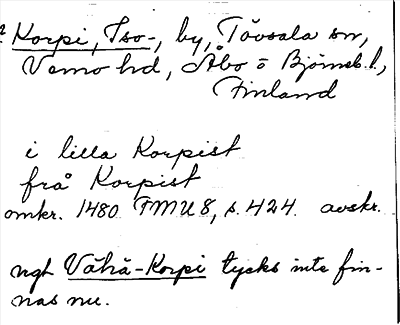 Korpi, Iso-, by, Tövsala sn,
Vemo hd, Åbo o Björneb. l.,
Finland
i lilla Korpist
frå Korpist
omkr. 1480 FMU 8, s. 424. avskr.
ngt Vähä-Korpi tycks inte fin-
nas nu.